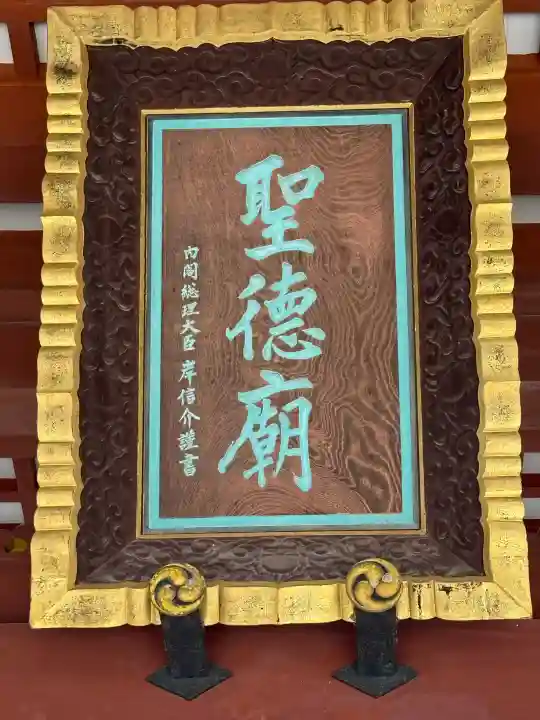 聖德廟
内閣総理大臣 岸信介謹書